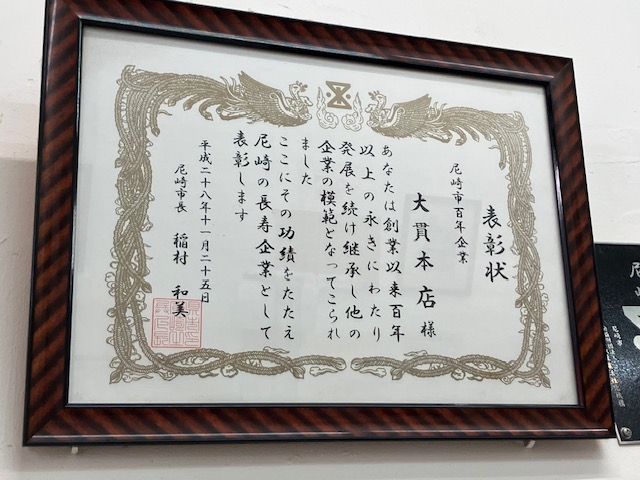 表彰状
尼崎市百年企業
大貫本店 様
あなたは創業以来百年
以上の永きにわたり
発展を続け継承し他の
企業の模範となってこられ
ました
ここにその功績をたたえ
尼崎の長寿企業として
表彰します
平成二十八年十一月二十五日
尼崎市長 稲村 和美
尼崎市